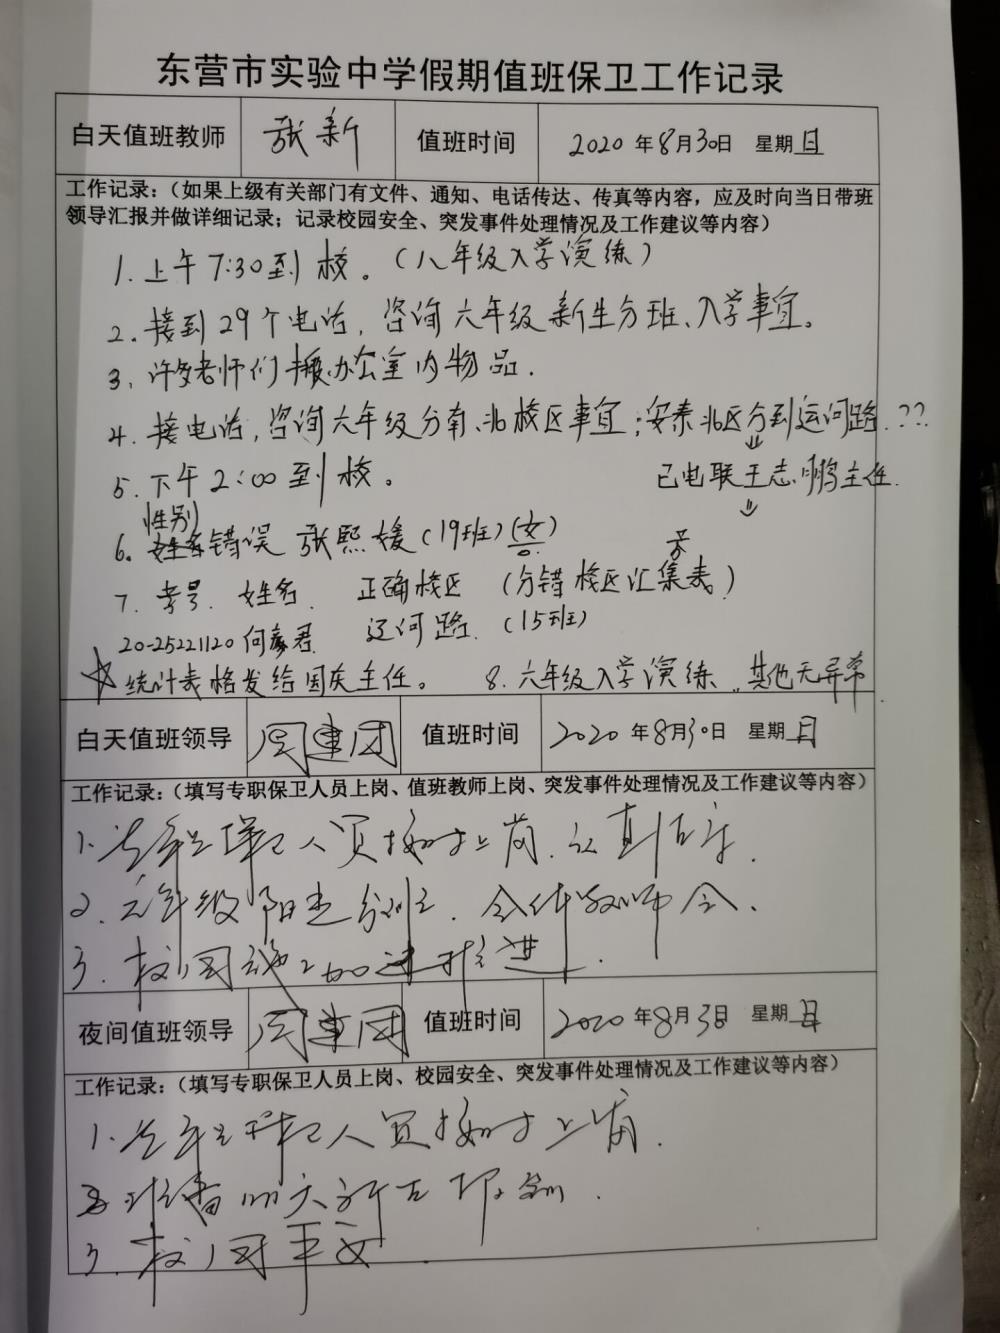 东营市实验中学假期值班保卫工作记录
白天值班教师 张新 值班时间 2020年8月30日 星期日
工作记录：（如果上级有关部门有文件、通知、电话传达、传真等内容，应及时向当日带班
领导汇报并做详细记录；记录校园安全、突发事件处理情况及工作建议等内容）
1.上午7:30到校。（八年级入学演练）
2.接到29个电话，咨询六年级新生分班、入学事宜。
3、许多老师们搬办公室内物品.
4.接电话,咨询六年级分南、北校区事宜;安泰北区分到运河路.??
5.下午2:00到校。
已电联王志鹏主任.
性别
6。错误 张熙媛(19班)(女)
7.考号. 姓名. 正确校区 (分错校区汇集表)
20-25221120 何 君 辽河路. (15班)
☆统计表格发给国庆主任。 8.六年级入学演练,其他无异常.
白天值班领导 周建团 值班时间 2020年8月30日 星期日
工作记录：（填写专职保卫人员上岗、值班教师上岗、突发事件处理情况及工作建议等内容）
1.人员按时上岗.认真值守.
2.六年级阳光分班.全体教师会.
3.校园推进.
夜间值班领导 周建团 值班时间 2020年8月30日 星期日
工作记录：（填写专职保卫人员上岗、校园安全、突发事件处理情况及工作建议等内容）
1.人员按时上岗.
3.校园平安.